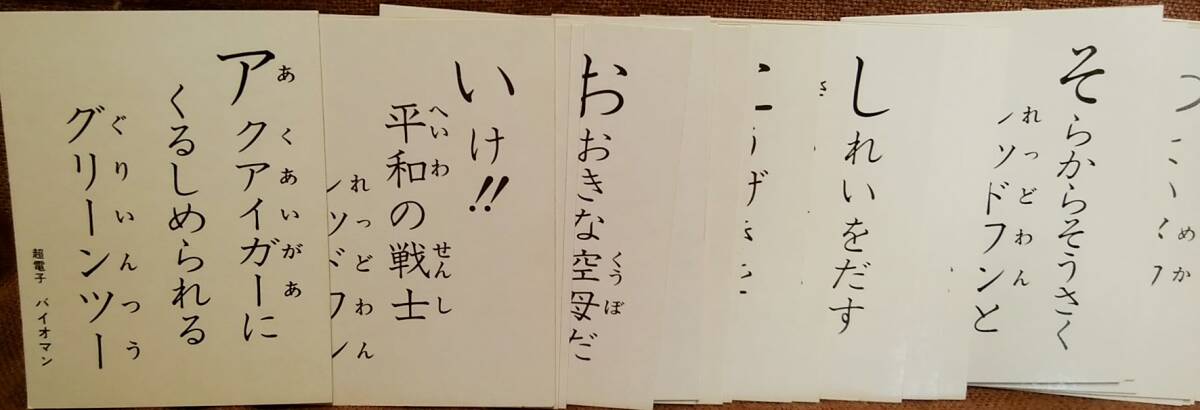 あくあいがあ
アクアイガーに
くるしめられる
ぐりいんつう
グリーンツー
超電子 バイオマン
いけ!!
へいわ せんし
平和の戦士
れっどわん
くうぼ
おおきな空母だ
しれいをだす
そらからそうさく
れっどわん
ッドワンと
めか